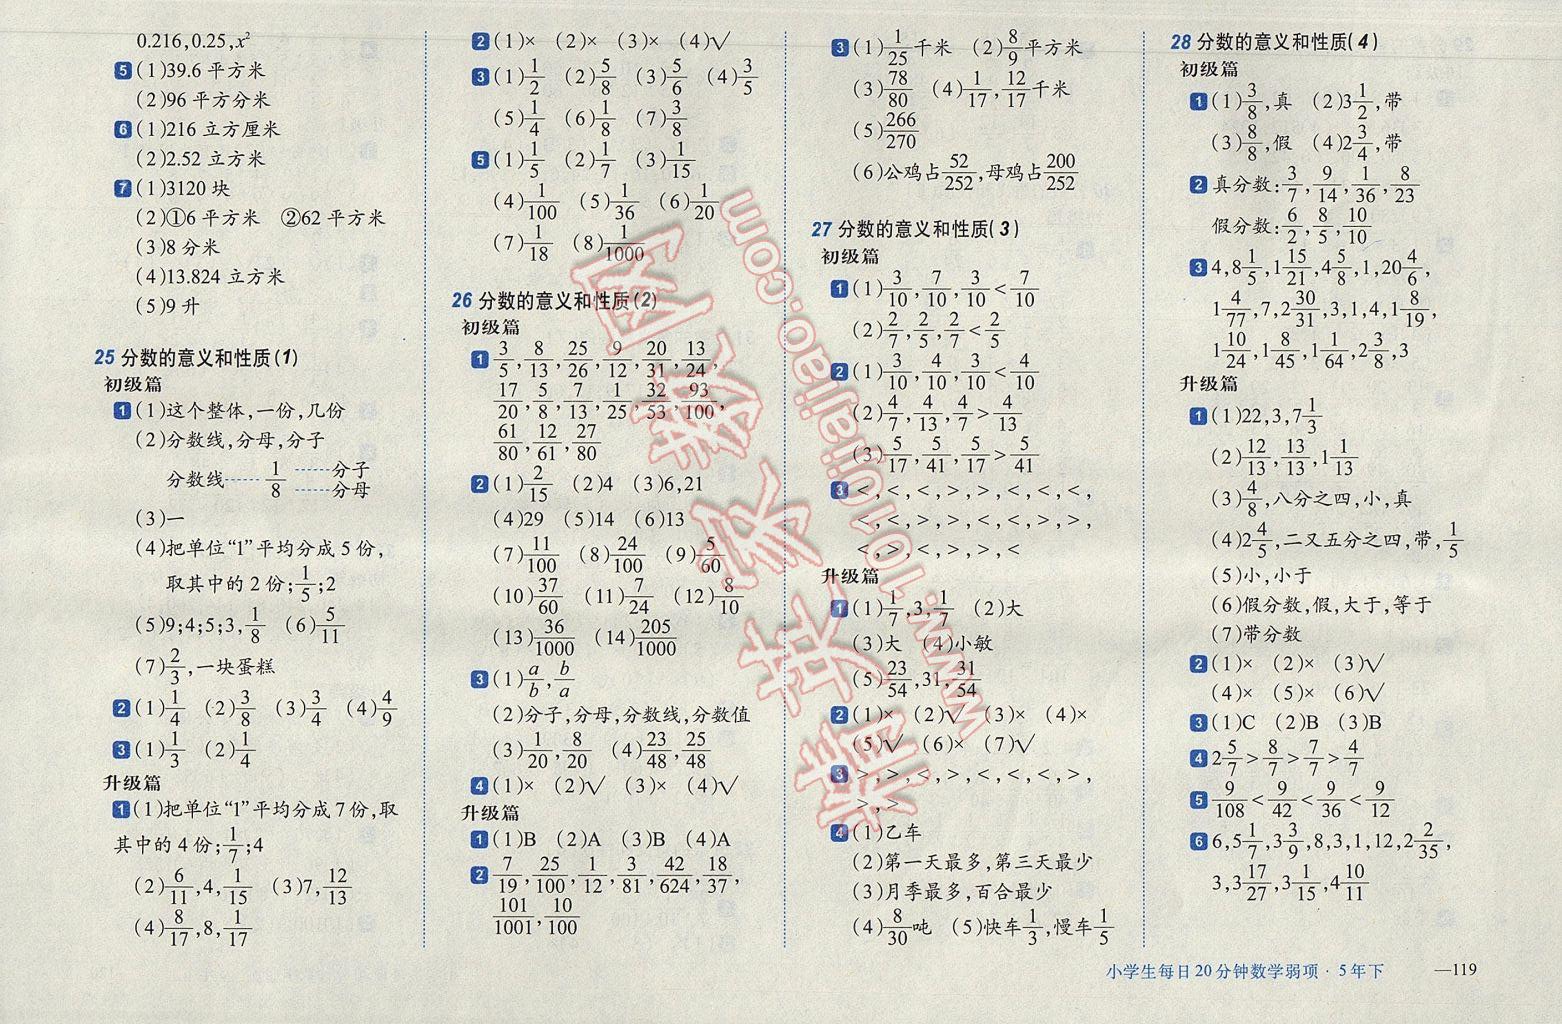 0.216,0.25,x²
5 (1)39.6平方米
(2)96平方分米
6 (1)216立方厘米
(2)2.52立方米
7 (1)3120块
(2)①6平方米 ②62平方米
(3)8分米
(4)13.824立方米
(5)9升
25 分数的意义和性质(1)
初级篇
1 (1)这个整体,一份,几份
(2)分数线,分母,分子
分数线……1/8……分子
……分母
(3)一
(4)把单位“1”平均分成5份,
取其中的2份;1/5;2
(5)9;4;5;3,1/8 (6)5/11
(7)2/3,一块蛋糕
2 (1)1/4 (2)3/8 (3)3/4 (4)4/9
3 (1)1/3 (2)1/4
升级篇
1 (1)把单位“1”平均分成7份,取
其中的4份;1/7;4
(2)6/11,4,1/15 (3)7,12/13
(4)8/17,8,1/17
2 (1)× (2)× (3)× (4)√
3 (1)1/2 (2)5/8 (3)5/6 (4)3/5
(5)1/4 (6)1/8 (7)3/8
5 (1)1/5 (2)1/7 (3)1/15
(4)1/100 (5)1/36 (6)1/20
(7)1/18 (8)1/1000
26 分数的意义和性质(2)
初级篇
1 3/5,8/13,25/26,9/12,20/31,13/24,
17/20,5/8,7/13,1/25,32/53,93/100,
61/80,12/61,27/80
2 (1)2/15 (2)4 (3)6,21
(4)29 (5)14 (6)13
(7)11/100 (8)24/100 (9)5/60
(10)37/60 (11)7/24 (12)8/10
(13)36/1000 (14)205/1000
3 (1)a/b,b/a
(2)分子,分母,分数线,分数值
(3)1/20,8/20 (4)23/48,25/48
4 (1)× (2)√ (3)× (4)√
升级篇
1 (1)B (2)A (3)B (4)A
2 7/19,25/100,1/12,3/81,42/624,18/37,
101/1001,10/100
3 (1)1/25千米 (2)8/9平方米
(3)78/80 (4)1/17,12/17千米
(5)266/270
(6)公鸡占52/252,母鸡占200/252
27 分数的意义和性质(3)
初级篇
1 (1)3/10,7/10,3/10<7/10
(2)2/7,2/5,2/7<2/5
2 (1)3/10,4/10,3/10<4/10
(2)4/7,4/13,4/7>4/13
(3)5/17,5/41,5/17>5/41
3 <,<,<,>,>,<,<,<,
<,>,>,<,<,>,>,
<,>,>,>,<
升级篇
1 (1)1/7,3,1/7 (2)大
(3)大 (4)小敏
(5)23/54,31,31/54
2 (1)× (2)√ (3)× (4)×
(5)√ (6)× (7)√
3 >,>,<,>,<,<,<,>,
>,>
4 (1)乙车
(2)第一天最多,第三天最少
(3)月季最多,百合最少
(4)8/30吨 (5)快车1/3,慢车1/5
28 分数的意义和性质(4)
初级篇
1 (1)3/8,真 (2)3 1/2,带
(3)8/8,假 (4)2 3/4,带
2 真分数:3/7,9/14,1/36,8/23
假分数:6/2,8/5,10/10
3 4,8 1/5,1 15/21,4 5/8,1,20 4/6,
1 4/77,7,2 30/31,3,1,4,1 8/19,
1 10/24,1 8/45,1 1/64,2 3/8,3
升级篇
1 (1)22,3,7 1/3
(2)12/13,13/13,1 1/13
(3)4/8,八分之四,小,真
(4)2 4/5,二又五分之四,带,1/5
(5)小,小于
(6)假分数,假,大于,等于
(7)带分数
2 (1)× (2)× (3)√
(4)× (5)× (6)√
3 (1)C (2)B (3)B
4 2 5/7>8/7>7/7>4/7
5 9/108<9/42<9/36<9/12
6 6,5 1/7,3 3/9,8,3,1,12,2 2/35,
3,3 17/27,3 1/15,4 10/11
小学生每日20分钟数学弱项·5年下 —119
www.1010jiajiao.com